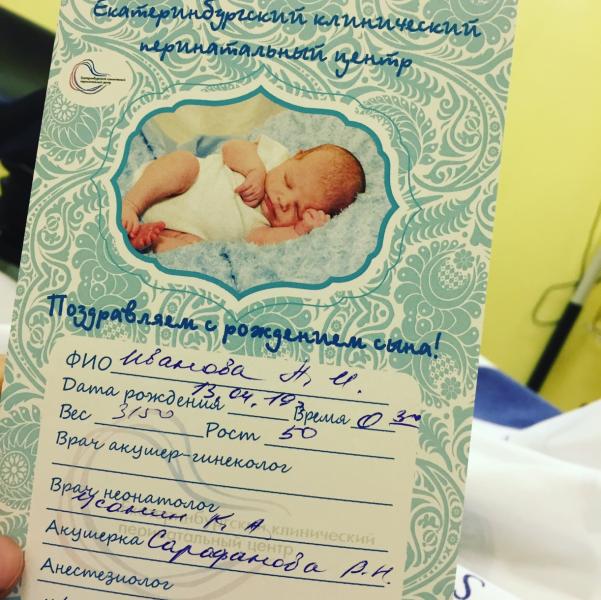 Екатеринбургский клинический
перинатальный центр
Поздравляем с рождением сына!
ФИО Иванова Н. И.
Дата рождения 13.04.19г Время 0 30
Вес 3150 Рост 50
Врач акушер-гинеколог
Врач неонатолог
К. А
клинический
перинатальный центр
Акушерка Сарафанова Р.Н.
Анестезиолог